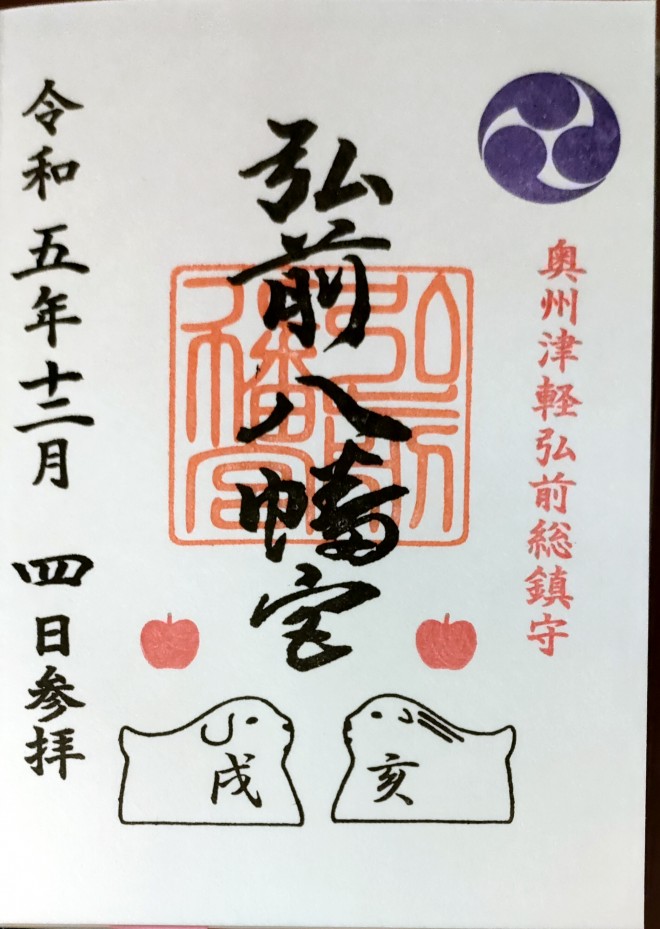 奥州津軽弘前総鎮守
弘前八幡宮
弘前八幡宮
亥
戌
令和五年十二月四日参拝